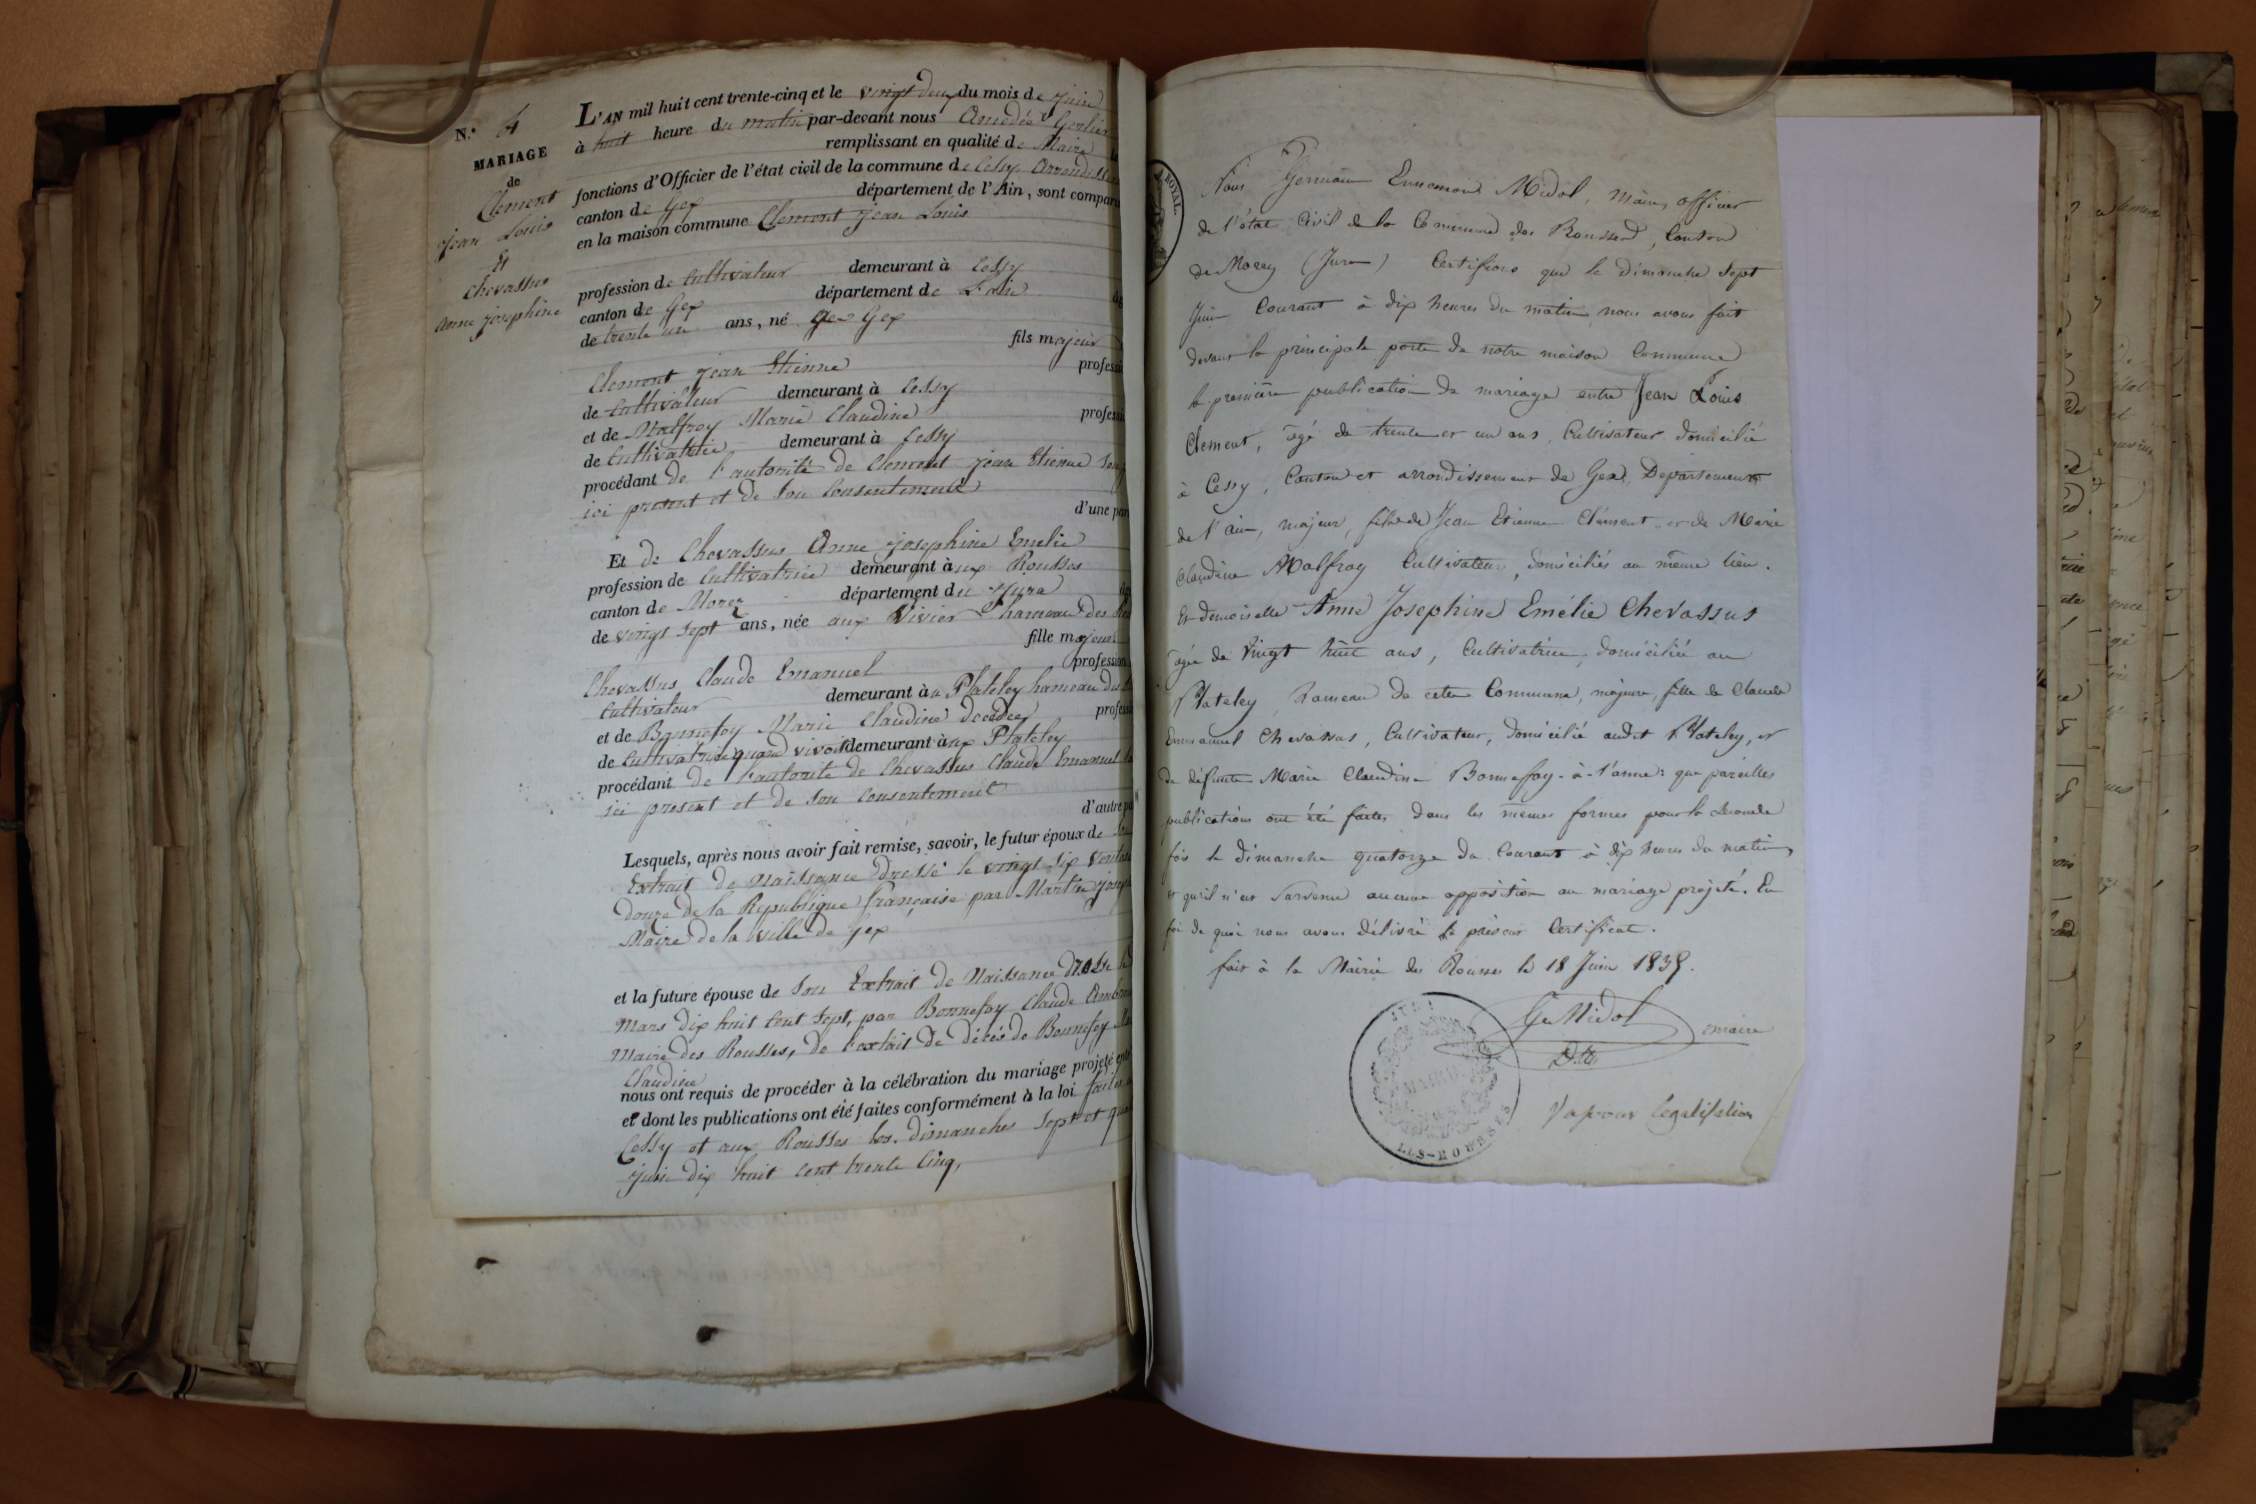 N.° 4
MARIAGE
de
Clement
jean Louis
Et
Chevassus
anne josephine
L'AN mil huit cent trente-cinq et le vingt deux du mois de juin
à huit heure du matin par-devant nous Amédée
remplissant en qualité de Maire
fonctions d'Officier de l'état civil de la commune de Cessy
canton de Gex département de l'Ain, sont compar
en la maison commune Clement jean Louis
profession de Cultivateur demeurant à Cessy
canton de Gex département de L'ain
de trente un ans, né Gex
fils majeur
Clement jean Etienne profess
de Cultivateur demeurant à Cessy
et de Malfroy Marie Claudine profess
de Cultivatrice demeurant à Cessy
procédant de l'autorité de Clement jean Etienne
ici present et de son consentement
d'une par
Et de Chevassus Anne josephine Emelie
profession de Cultivatrice demeurant aux Rousses
canton de Morez département du Jura
de vingt sept ans, née aux Vivier hameau des
fille majeure
Chevassus Claude Emanuel profession
Cultivateur demeurant au Plateley hameau des
et de Bonnefoy Marie Claudine decédee profess
de Cultivatrice quand vivoit demeurant aux Plateley
procédant de l'autorité de Chevassus Claude Emanuel
ici present et de son consentement
d'autre pa
Lesquels, après nous avoir fait remise, savoir, le futur époux de
Extrait de naissance dressé le vingt six
douze de la Republique française par Martin
Maire de la ville de Gex
et la future épouse de son Extrait de Naissance
Mars dix huit cent sept, par Bonnefoy Claude
Maire des Rousses, de l'extrait de décès de Bonnefoy
Claudine
nous ont requis de procéder à la célébration du mariage projeté
et dont les publications ont été faites conformément à la loi
Cessy et aux Rousses les dimanches sept et
juin dix huit cent trente cinq,
ROYAL.
Nous Germain Ennemond Midol, maire, officier
de l'état Civil de la Commune des Rousses, Canton
de Morez (Jura) Certifions que le dimanche sept
Juin Courant à dix heures du matin nous avons fait
devant la principale porte de notre maison Commune
la premiere publication de mariage entre Jean Louis
Clement, agé de trente et un ans, Cultivateur domicilié
à Cessy, Canton et arrondissement de Gex, Departement
de l'ain, majeur, fils de Jean Etienne Clément et de Marie
Claudine Malfroy Cultivateurs, domiciliés au même lieu.
Et demoiselle Anne Josephine Emélie Chevassus
agée de Vingt huit ans, Cultivatrice, domiciliée au
Plateley, hameau de cette Commune, majeure, fille de Claude
Emmanuel Chevassus, Cultivateur, domicilié audit Plateley, et
de défunte Marie Claudine Bonnefoy que pareilles
publications ont été faites dans les mêmes formes pour la seconde
fois le dimanche quatorze du Courant à dix heures du matin,
et qu'il n'est survenu aucune opposition au mariage projeté. En
foi de quoi nous avons délivré le présent Certificat.
fait à la Mairie des Rousses le 18 Juin 1835.
Ge Midol maire
MAIRIE
LES-ROUSSES
Vu pour legalisation